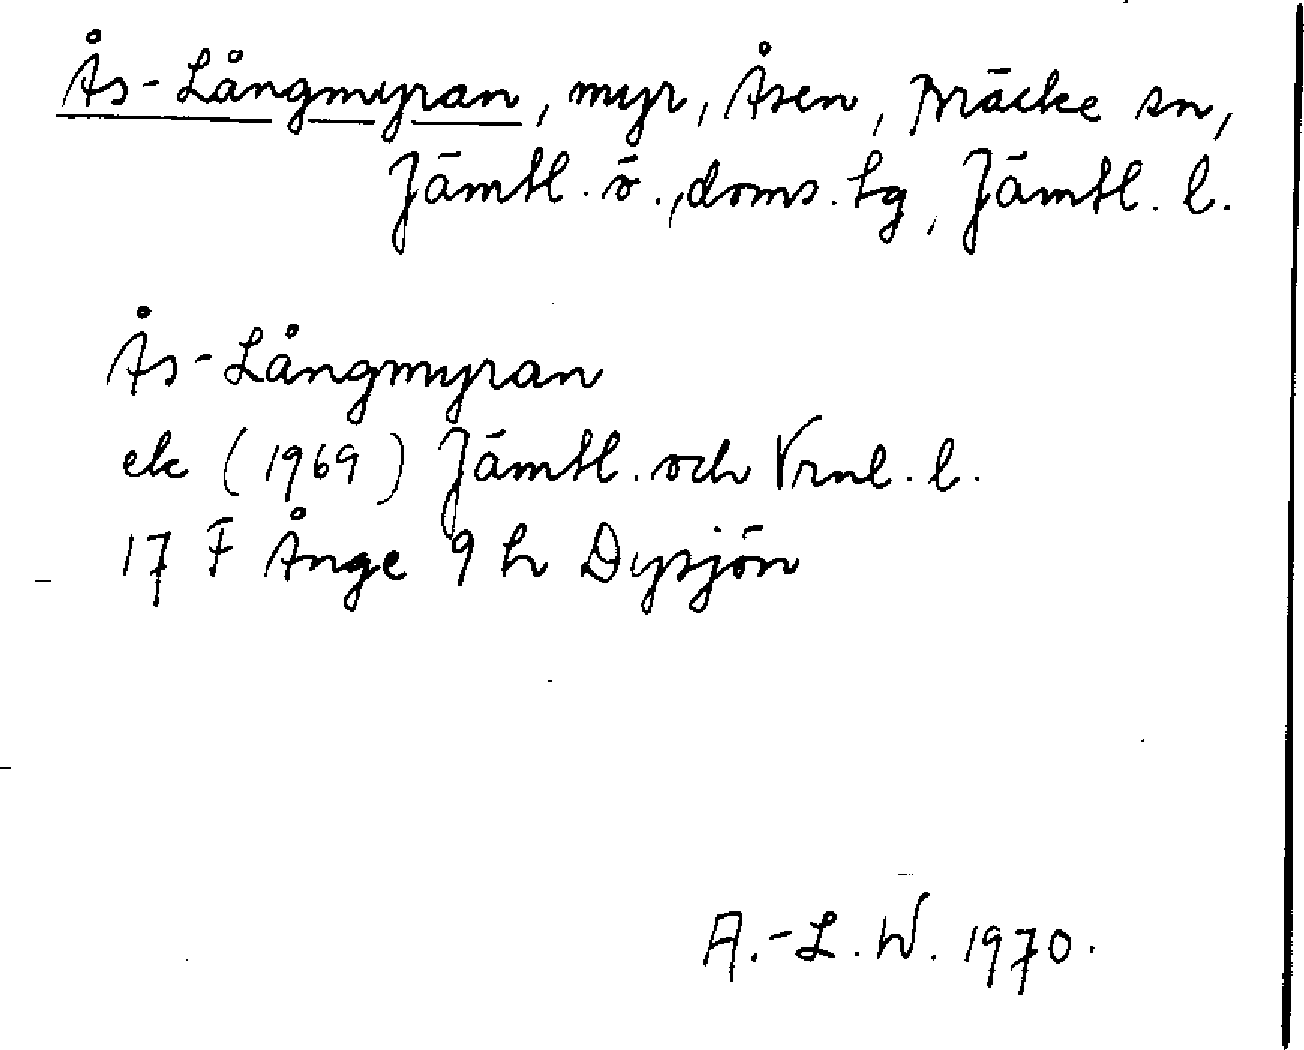 Ås-Långmyran, myr, Åsen, Bräcke sn,
Jämtl. ö., doms. hg, Jämtl. l.
Ås-Långmyran
ek (1969) Jämtl. och Vrnl. l.
17 F Ånge 9 h Dysjön
A.-L. W. 1970.